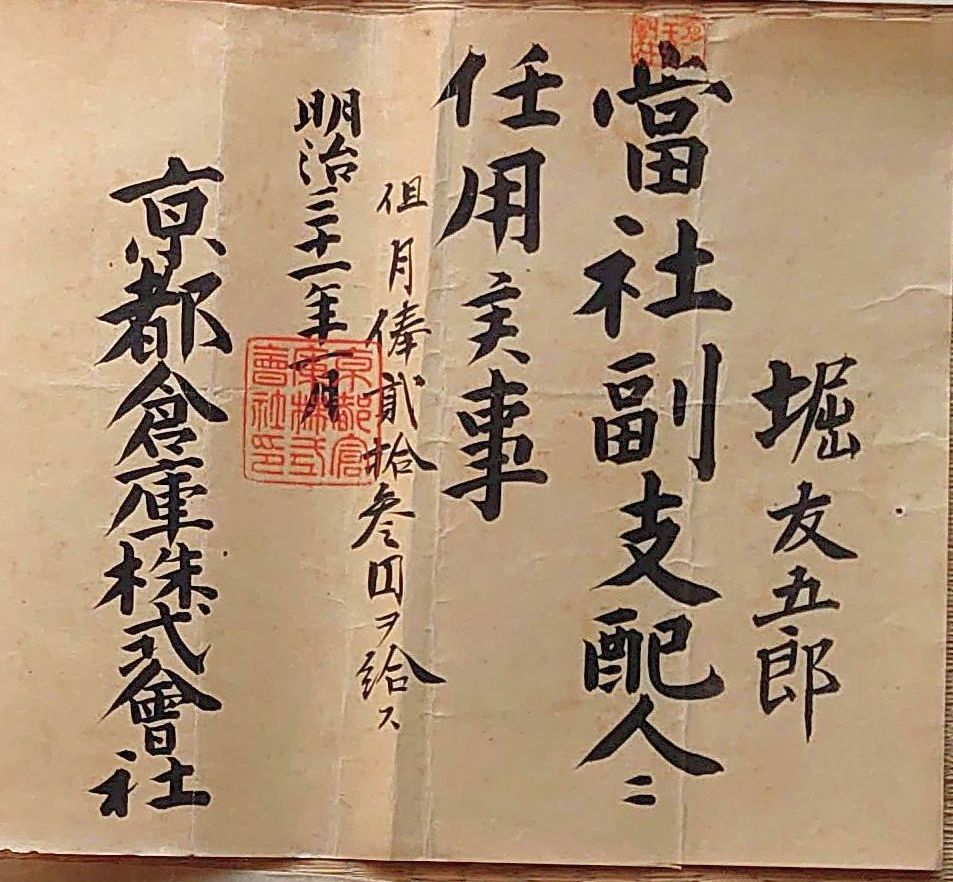 堀友五郎
當社副支配人ニ
任用候事
但月俸貳拾叁円ヲ給ス
明治三十一年一月
京都倉庫株式會社
京都倉庫株式會社印